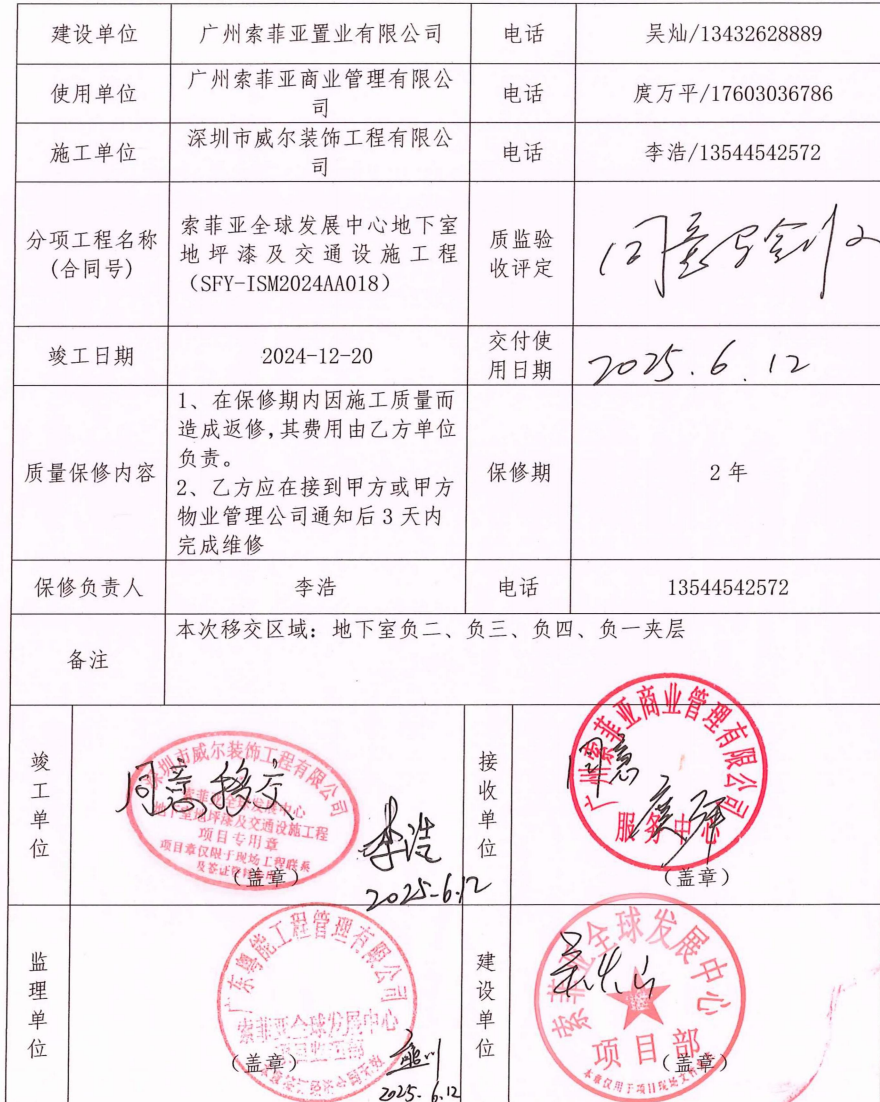 建设单位 广州索菲亚置业有限公司 电话 吴灿/13432628889
使用单位 广州索菲亚商业管理有限公
司 电话 庹万平/17603036786
施工单位 深圳市威尔装饰工程有限公
司 电话 李浩/13544542572
分项工程名称
(合同号)
索菲亚全球发展中心地下室
地坪漆及交通设施工程
(SFY-ISM2024AA018)
质监验
收评定
同意
竣工日期 2024-12-20
交付使
用日期
2025.6.12
质量保修内容
1、在保修期内因施工质量而
造成返修,其费用由乙方单位
负责。
2、乙方应在接到甲方或甲方
物业管理公司通知后3天内
完成维修
保修期 2年
保修负责人 李浩 电话 13544542572
备注 本次移交区域：地下室负二、负三、负四、负一夹层
竣工单位
深圳市威尔装饰工程有限公司
索菲亚全球发展中心
地下室地坪漆及交通设施工程
项目专用章
项目章仅限于现场工程联系
同意移交
李浩
(盖章)
2025-6.12
接收单位
广州索菲亚商业管理有限公司
服务中心
同意
(盖章)
监理单位
广东粤能工程管理有限公司
索菲亚全球发展中心
项目监理部
(盖章)
2025.6.12
建设单位
索菲亚全球发展中心
项目部
吴灿
(盖章)